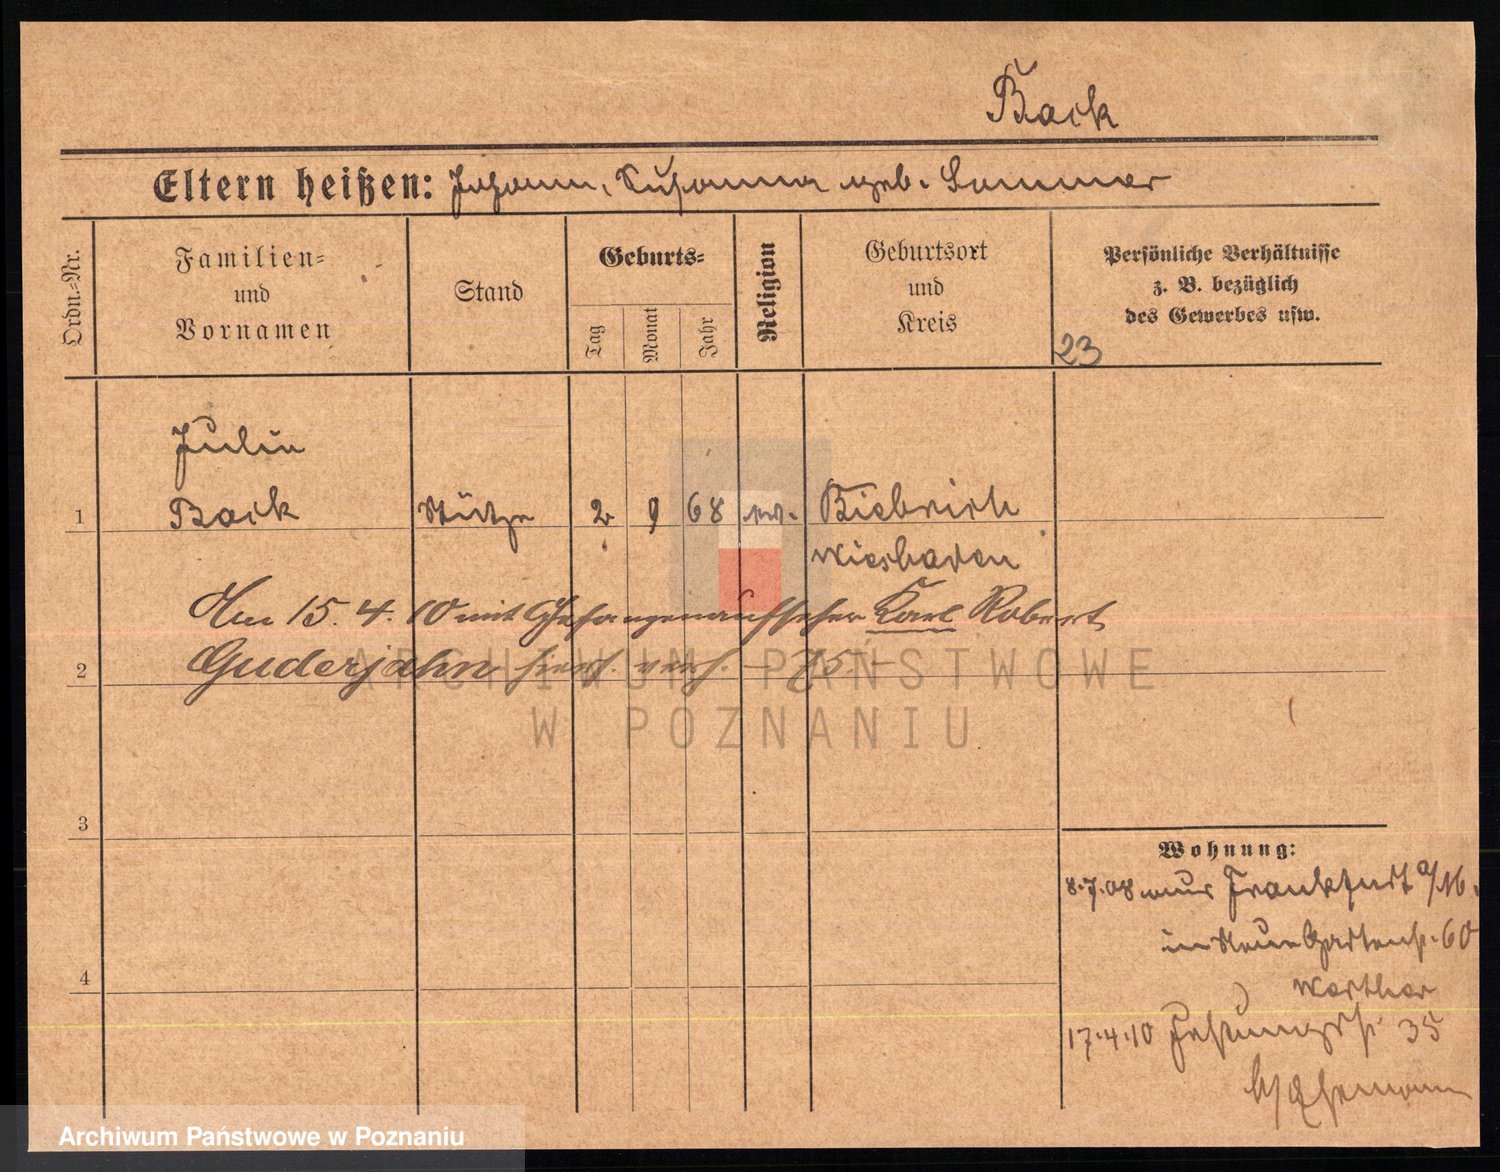 Back
Eltern heißen: Johann, Susanna geb. Sommer
Ordn.-Nr.
Familien- und Vornamen
Stand
Geburts-
Tag
Monat
Jahr
Religion
Geburtsort und Kreis
Persönliche Verhältnisse
z. B. bezüglich
des Gewerbes usw.
23
Julie
1 Back Stütze 2 9 68 ev. Biebrich
Wiesbaden
Am 15. 4. 10 mit Gefangenaufseher Karl Robert
2 Guderjahn hier verh. – 75 –
3
4
Wohnung:
8.7.08 aus Frankfurt a/M.
in Neue Gartenstr. 60
Werther
17.4.10 Festungsstr 35
b/ Ehemann
ARCHIWUM PAŃSTWOWE
W POZNANIU
Archiwum Państwowe w Poznaniu